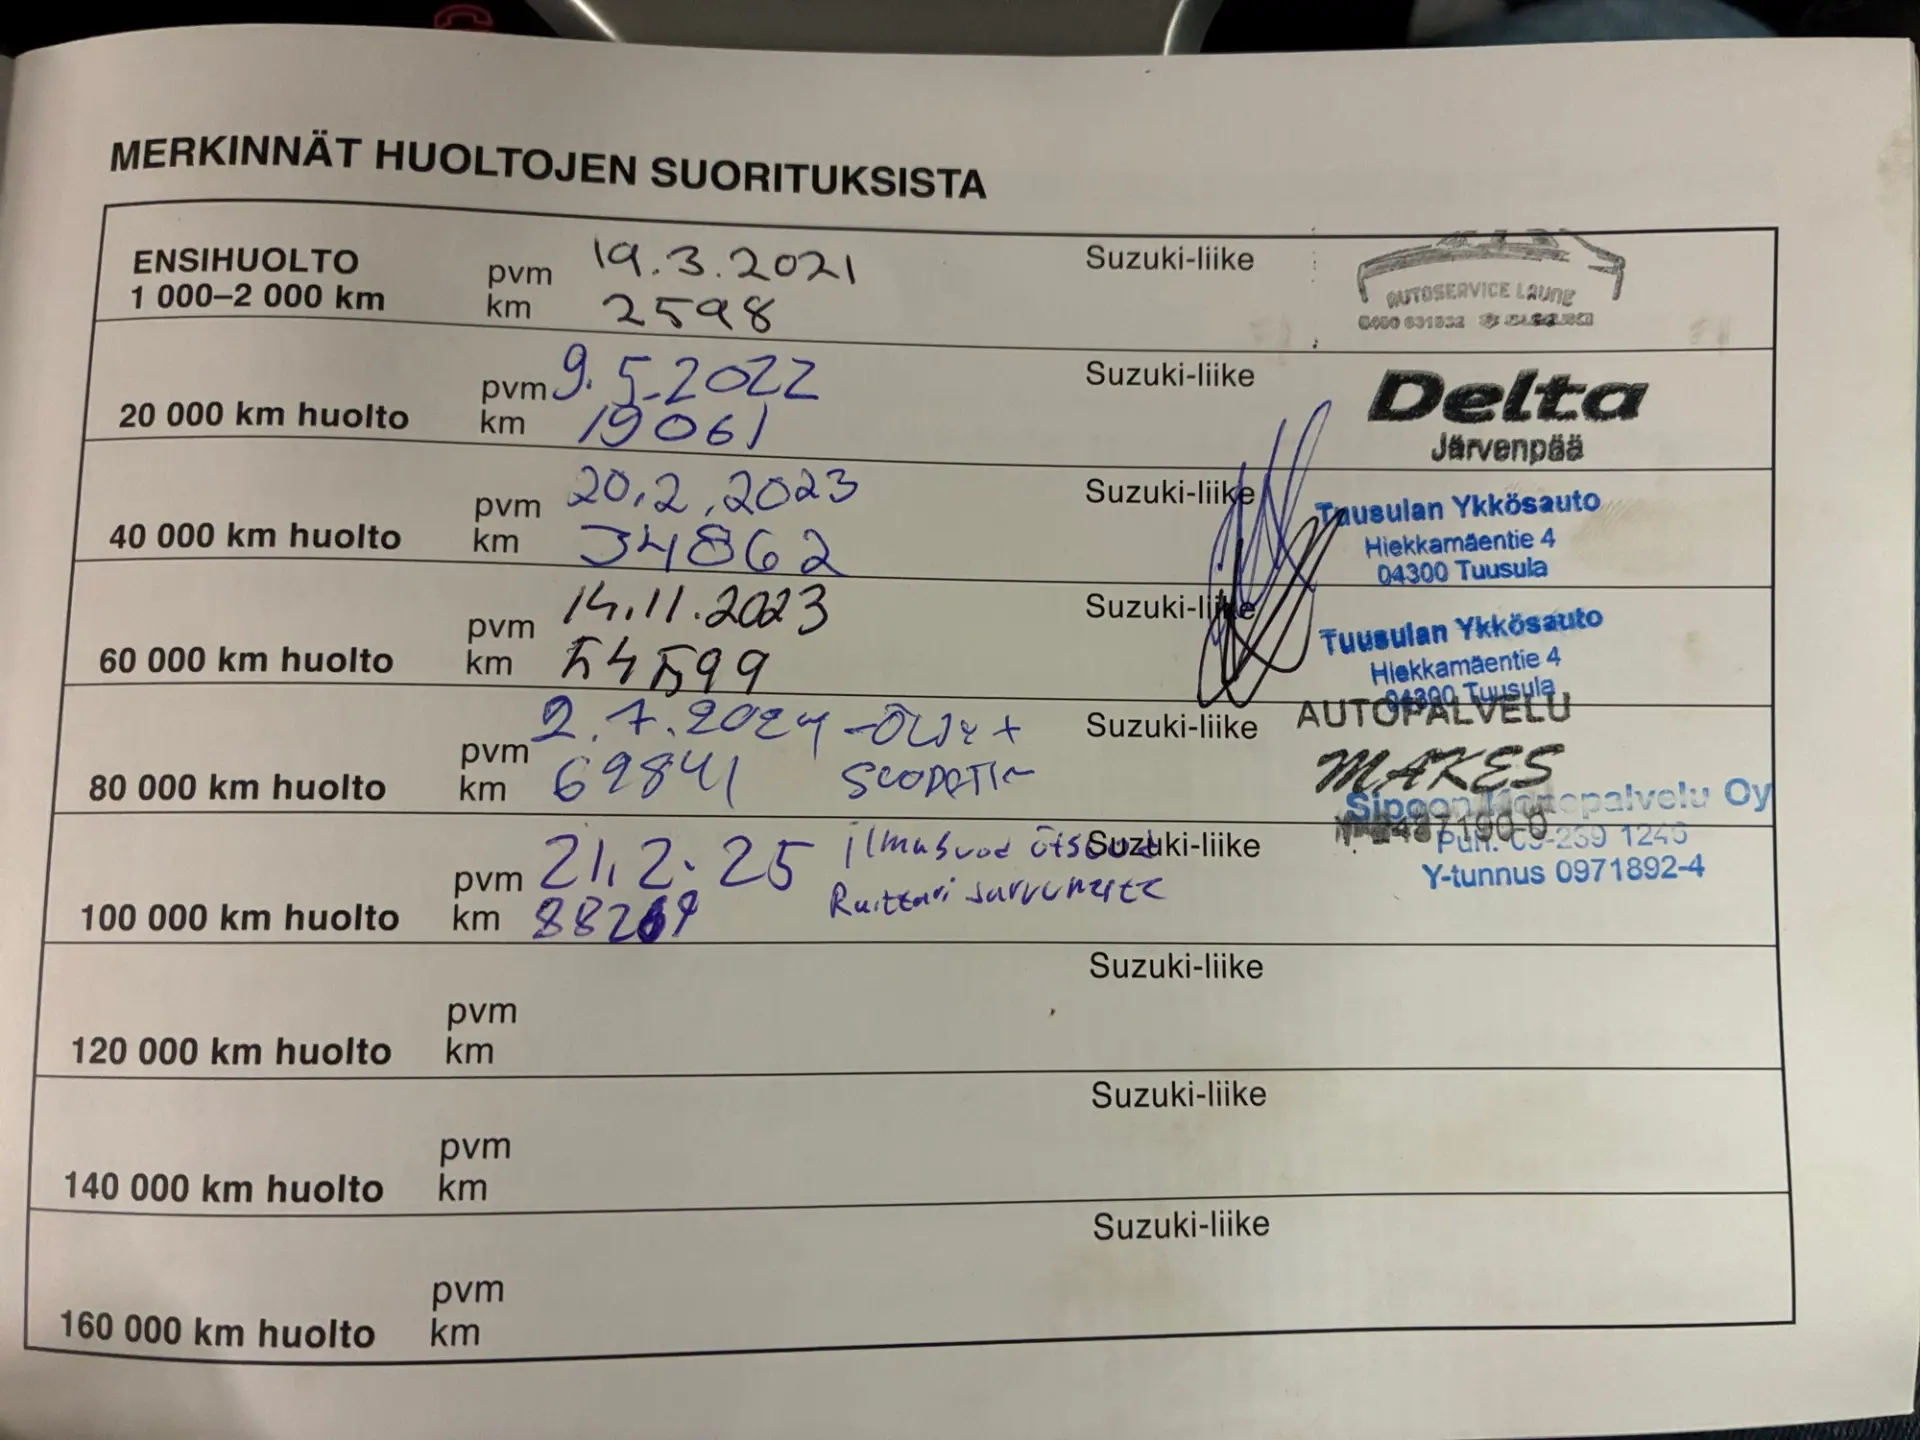 MERKINNÄT HUOLTOJEN SUORITUKSISTA
ENSIHUOLTO
1 000–2 000 km
pvm 19.3.2021
km 2598
Suzuki-liike
AUTOSERVICE LAUNE
20 000 km huolto
pvm 9.5.2022
km 19061
Suzuki-liike
Delta
Järvenpää
40 000 km huolto
pvm 20.2.2023
km 34862
Suzuki-liike
Tuusulan Ykkösauto
Hiekkamäentie 4
04300 Tuusula
60 000 km huolto
pvm 14.11.2023
km 54599
Suzuki-liike
Tuusulan Ykkösauto
Hiekkamäentie 4
04300 Tuusula
80 000 km huolto
pvm 2.7.2024 -ÖLJY +
km 69841 SUODATIN
Suzuki-liike
AUTOPALVELU
MAKES
100 000 km huolto
pvm 21.2.25
km
Suzuki-liike
Sipoon Oy
Puh. 09-239
Y-tunnus 0971892-4
120 000 km huolto
pvm
km
Suzuki-liike
140 000 km huolto
pvm
km
Suzuki-liike
160 000 km huolto
pvm
km
Suzuki-liike